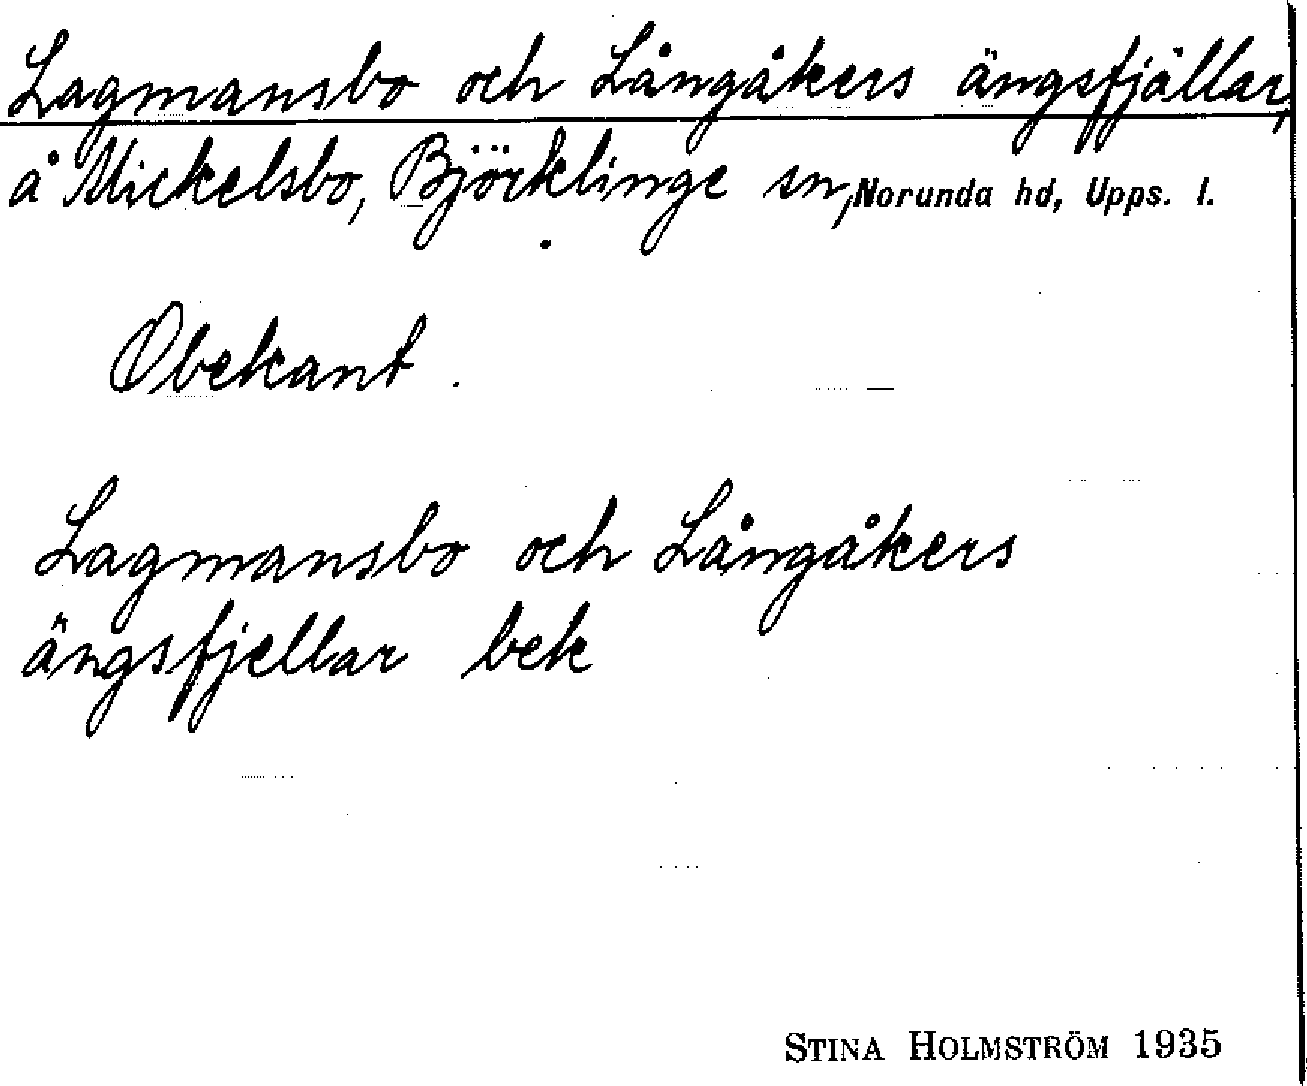 Lagmansbo och Långåkers ängsfjällar,
å Mickelsbo, Björklinge sn, Norunda hd, Upps. l.
Obekant.
Lagmansbo och Långåkers
ängsfjellar bek
STINA HOLMSTRÖM 1935